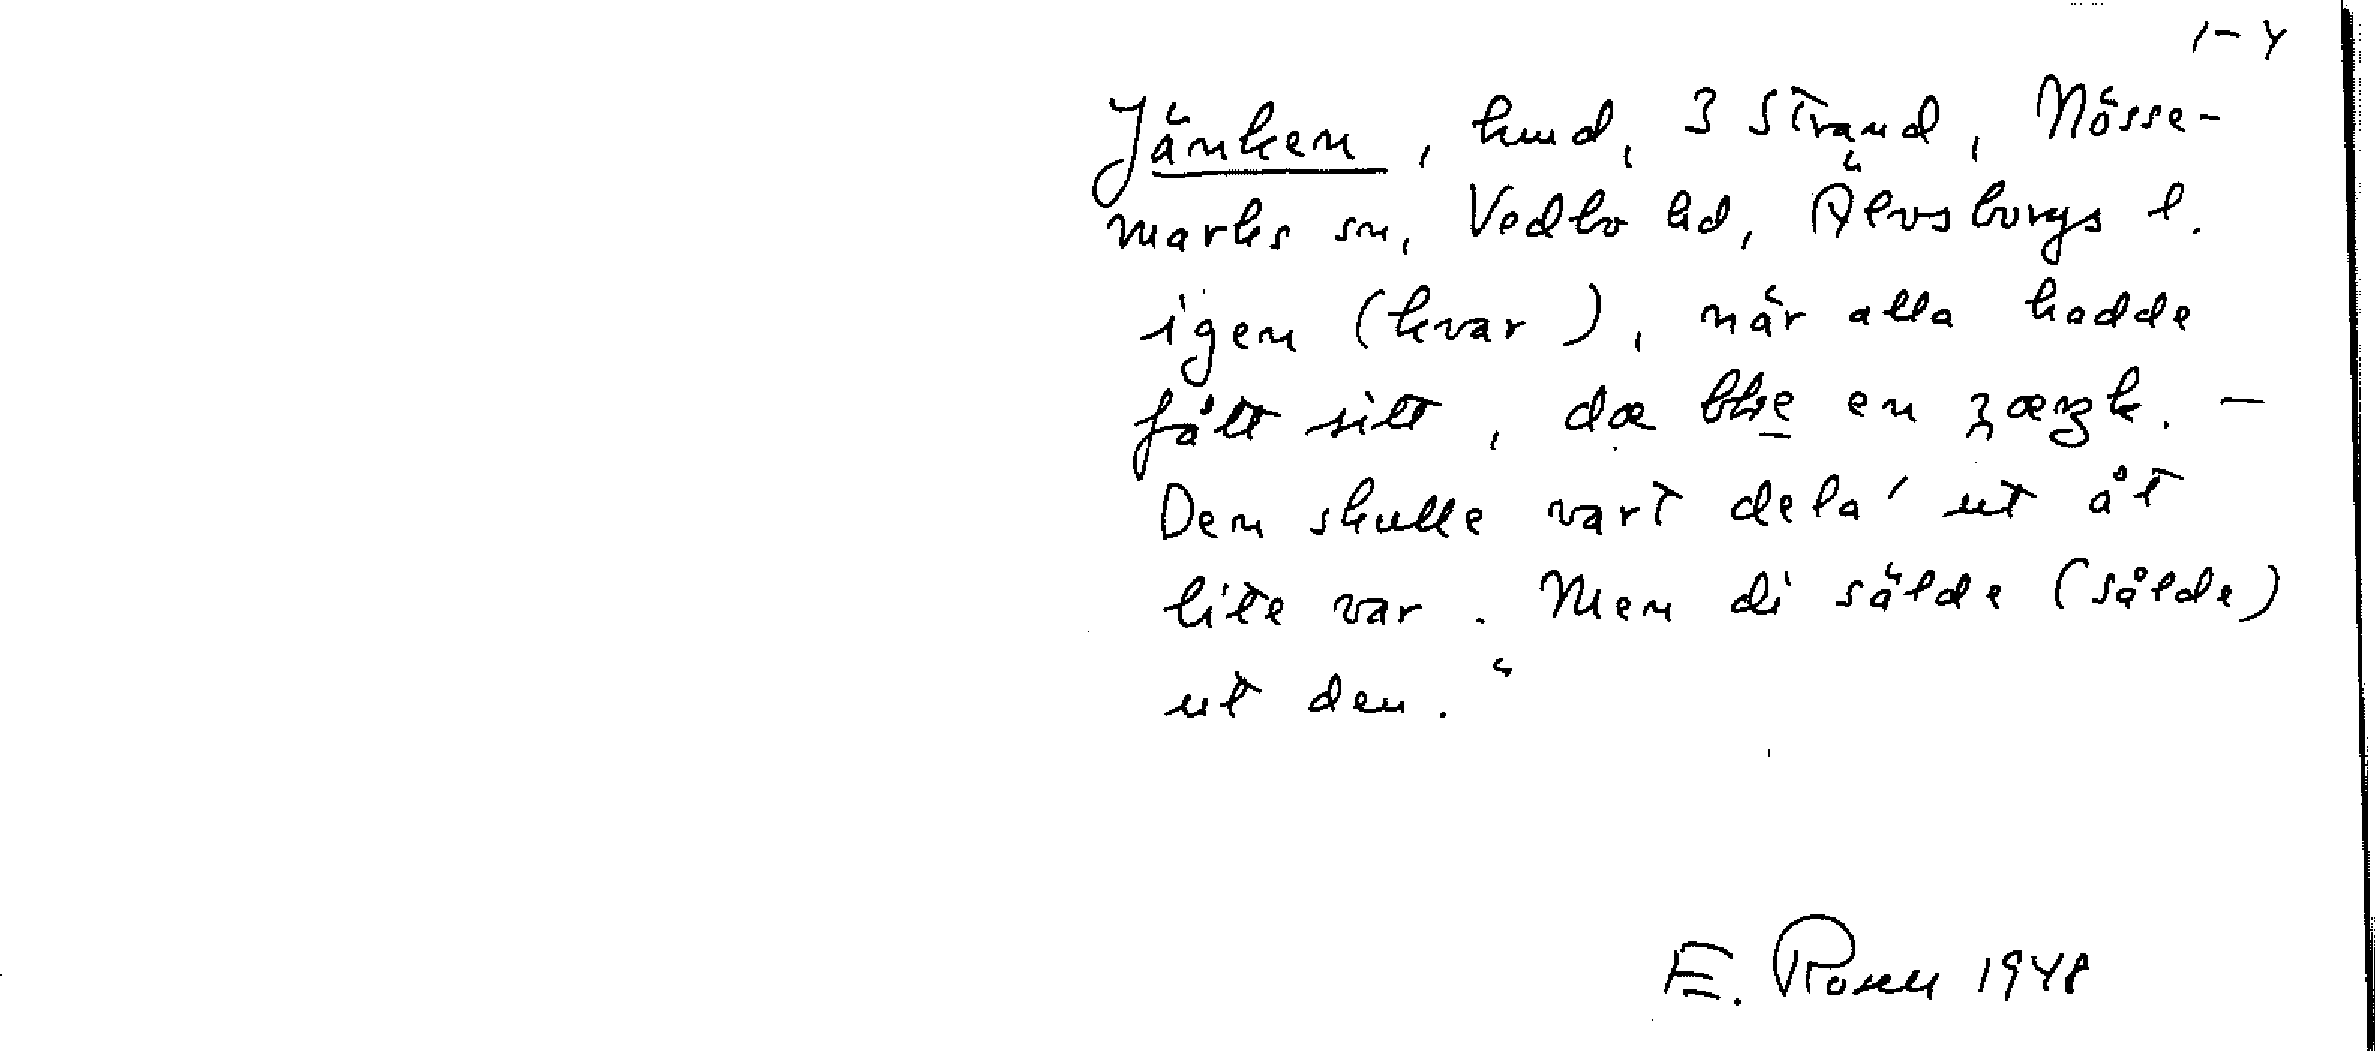 1-4
Jänken, hmd, 3 Strand, Nösse-
marks sn, Vedbo hd, Älvsborgs l.
igen (kvar), när alla hadde
fått sitt, dæ ble en
Den skulle vart dela' ut åt
lite var. Men di sälde (sålde)
ut den."
E. Rosell 1948